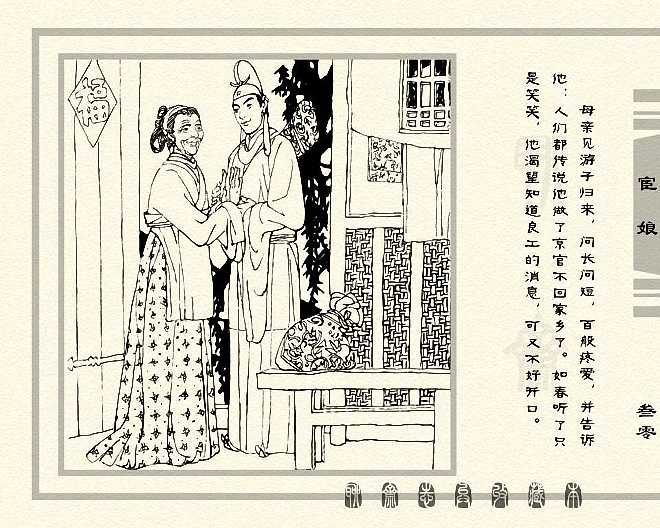 母亲见游子归来，问长问短，百般疼爱，并告诉
他：人们都传说他做了京官不回家乡了。如春听了只
是笑笑，他渴望知道良工的消息，可又不好开口。
宦娘
叁零
福
聊斋志异收藏本